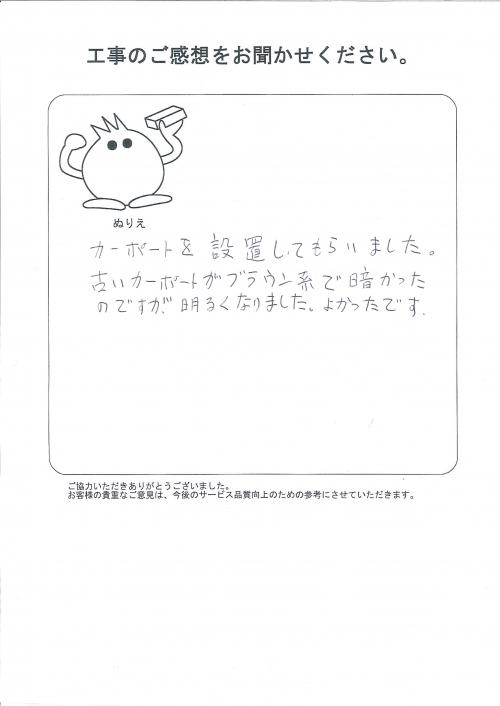 工事のご感想をお聞かせください。
ぬりえ
カーポートを設置してもらいました。
古いカーポートがブラウン系で暗かった
のですが、明るくなりました。よかったです.
ご協力いただきありがとうございました。
お客様の貴重なご意見は、今後のサービス品質向上のための参考にさせていただきます。